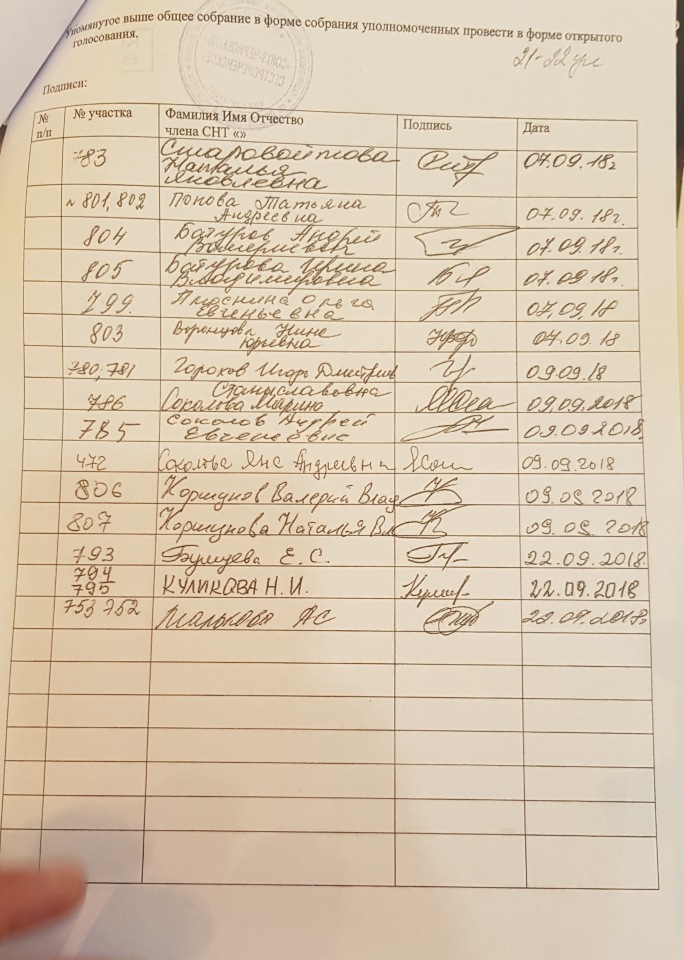 Упомянутое выше общее собрание в форме собрания уполномоченных провести в форме открытого
голосования.
21-22 ул
Подписи:
№ п/п № участка Фамилия Имя Отчество члена СНТ «» Подпись Дата
783 Старовойтова
Наталья
Яковлевна 07.09.18г
801, 802 Попова Татьяна
Андреевна 07.09.18г.
804 Батуров Андрей
Валерьевич 07.09.18г.
805 Батурова Ирина
Владимировна 07.09.18г.
799. Плоснина Ольга
Евгеньевна 07.09.18
803 Воронцова Нине
Юрьевна 07.09.18
780, 781 Горохов Игорь Дмитриев 09.09.18
Станиславовна
786 Соколова Марино 09.09.2018
785 Соколов Андрей
09.092018.
472 Яна Андреевна 09.09.2018
806 Коршунов Валерий Влад 09.09.2018
807 Коршунова Наталья Вл 09.09.2018
793 Е.С. 22.09.2018.
794
795 КУЛИКОВА Н.И. 22.09.2018
753 752 АС 22.09.2018г